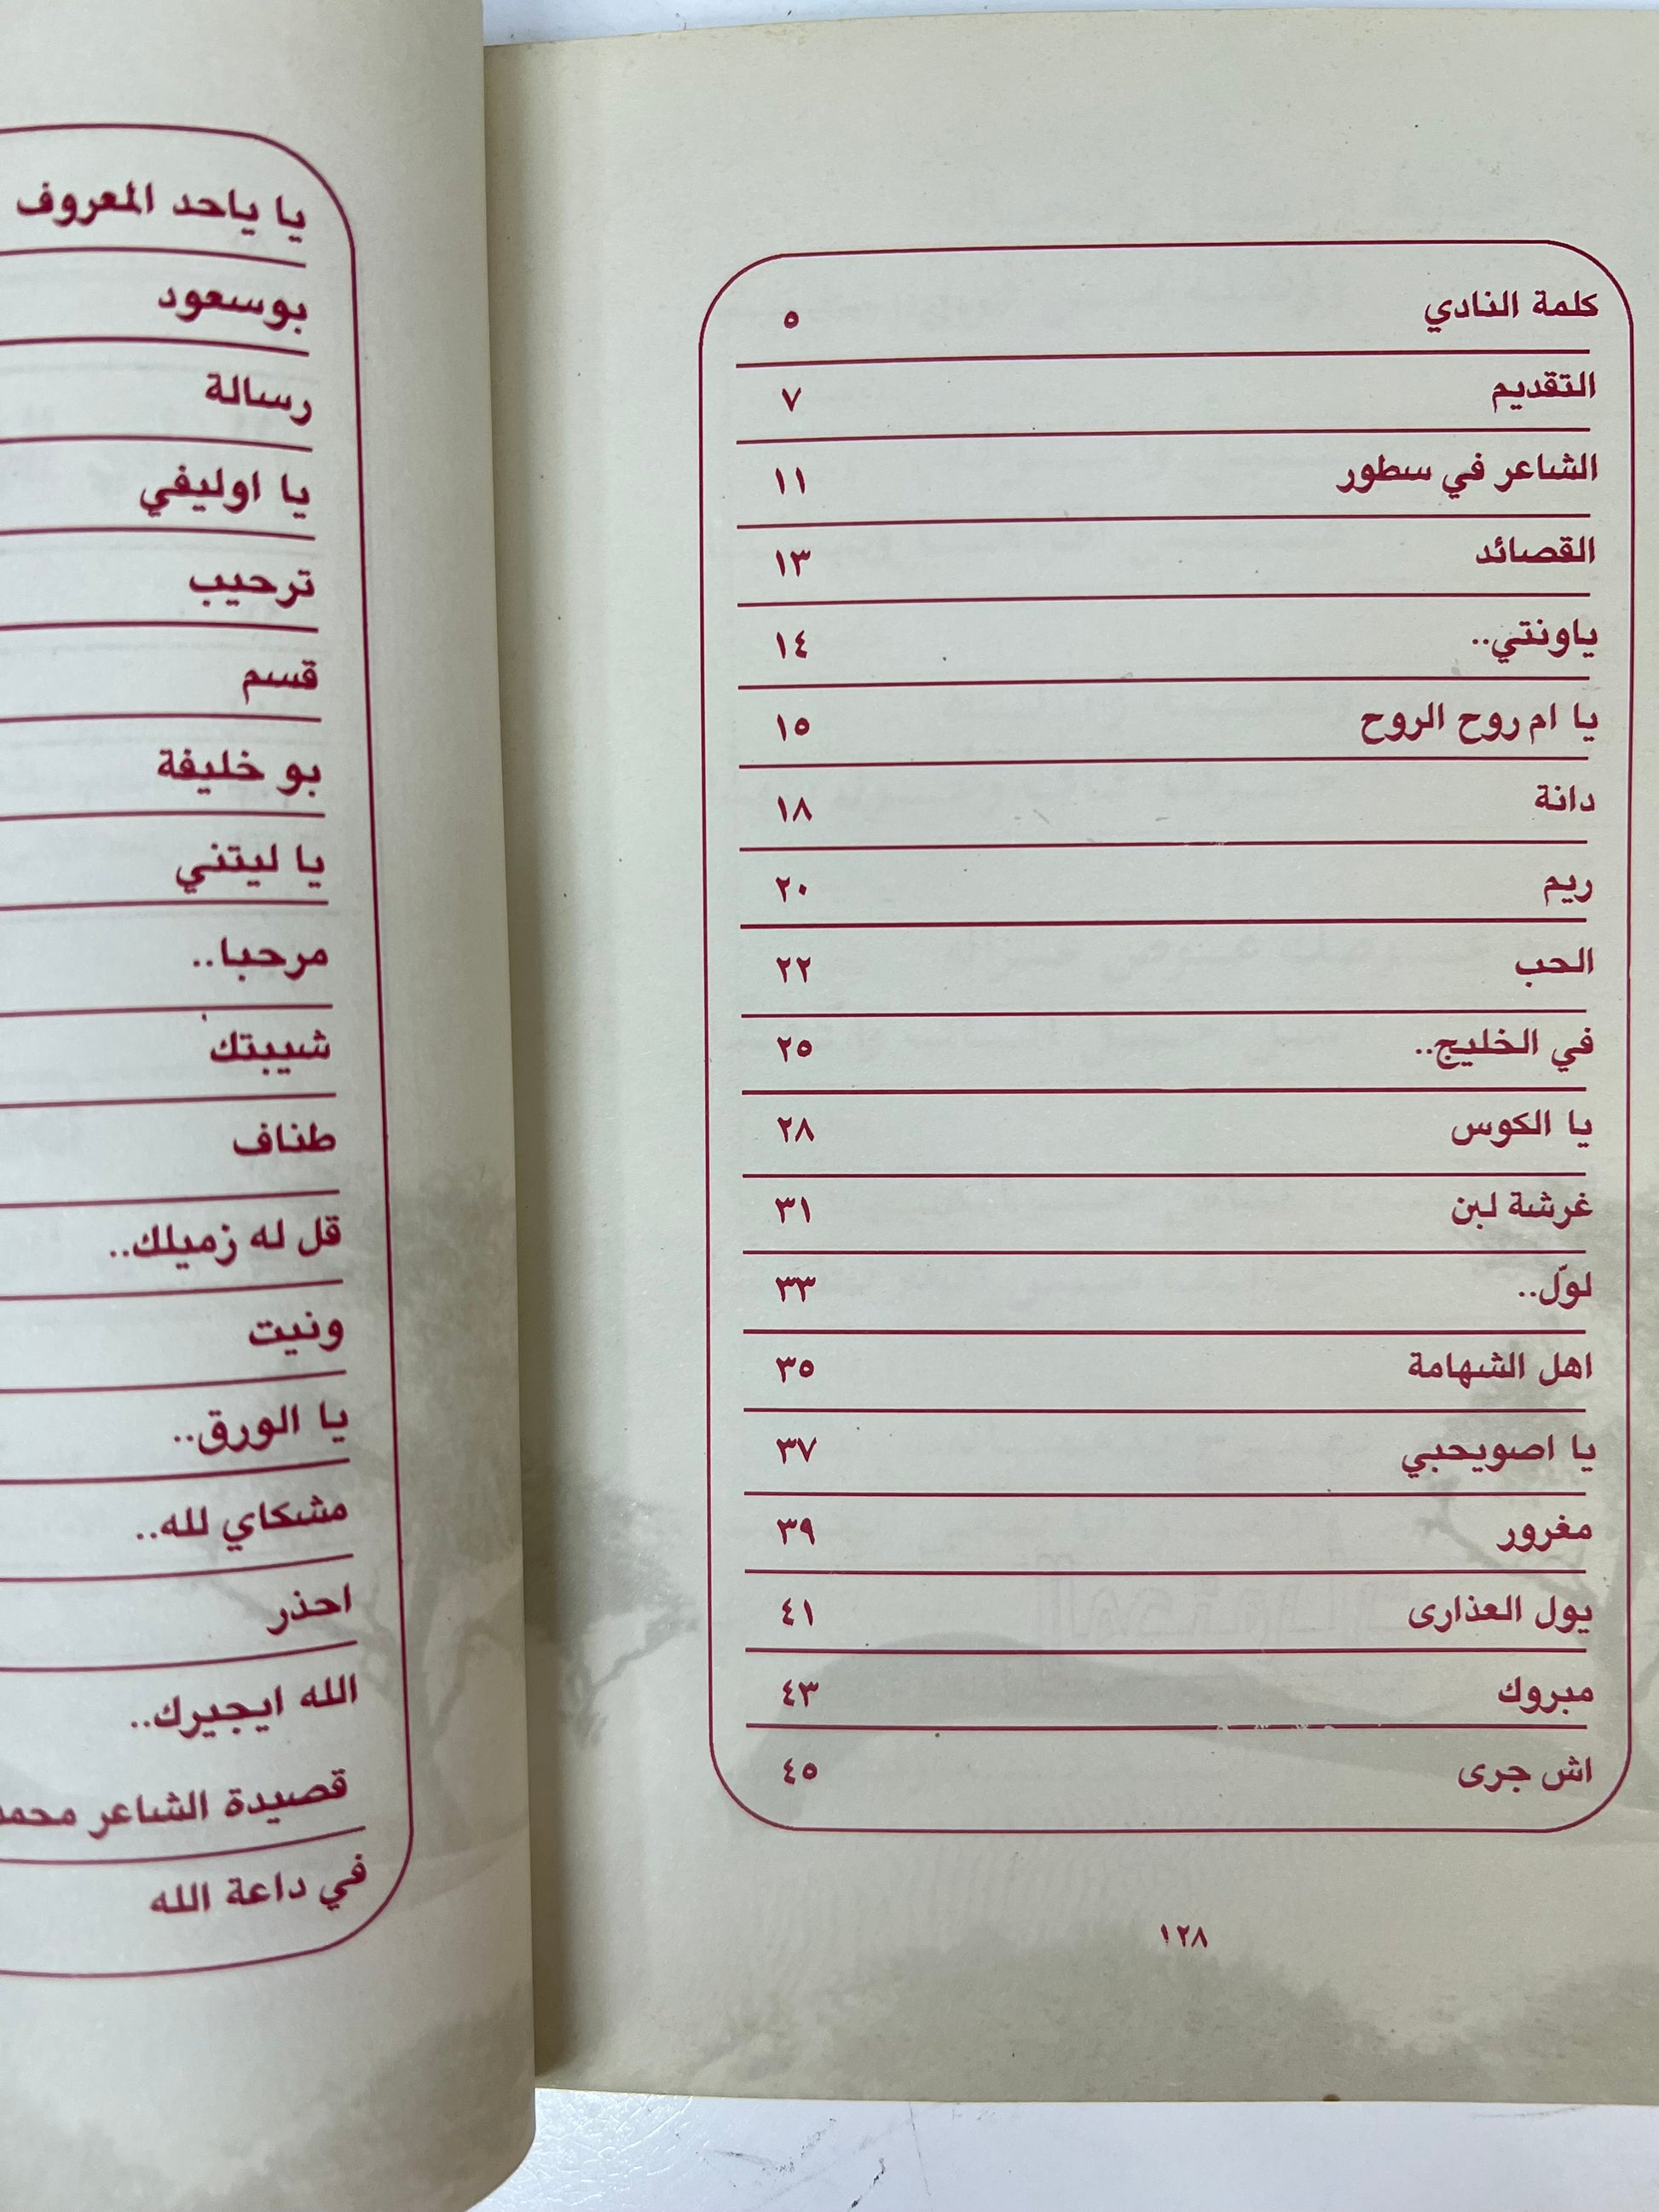 كلمة النادي ٥
التقديم ٧
الشاعر في سطور ١١
القصائد ١٣
ياونتي.. ١٤
يا ام روح الروح ١٥
دانة ١٨
ريم ٢٠
الحب ٢٢
في الخليج.. ٢٥
يا الكوس ٢٨
غرشة لبن ٣١
لوّل.. ٣٣
اهل الشهامة ٣٥
يا اصويحبي ٣٧
مغرور ٣٩
يول العذارى ٤١
مبروك ٤٣
اش جرى ٤٥
١٢٨
يا ياحد المعروف
بوسعود
رسالة
يا اوليفي
ترحيب
قسم
بو خليفة
يا ليتني
مرحبا..
شيبتك
طناف
قل له زميلك..
ونيت
يا الورق..
مشكاي لله..
احذر
الله ايجيرك..
قصيدة الشاعر محمد
في داعة الله